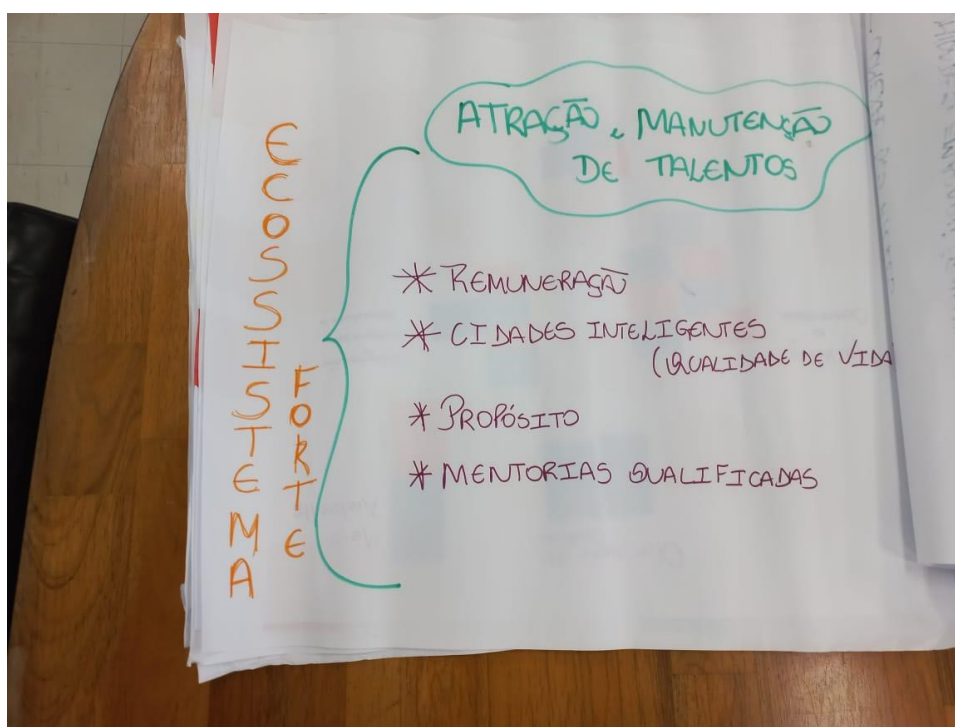 ECOSSISTEMA
FORTE
ATRAÇÃO e MANUTENÇÃO
DE TALENTOS
* REMUNERAÇÃO
* CIDADES INTELIGENTES
(QUALIDADE DE VIDA
* PROPÓSITO
* MENTORIAS QUALIFICADAS